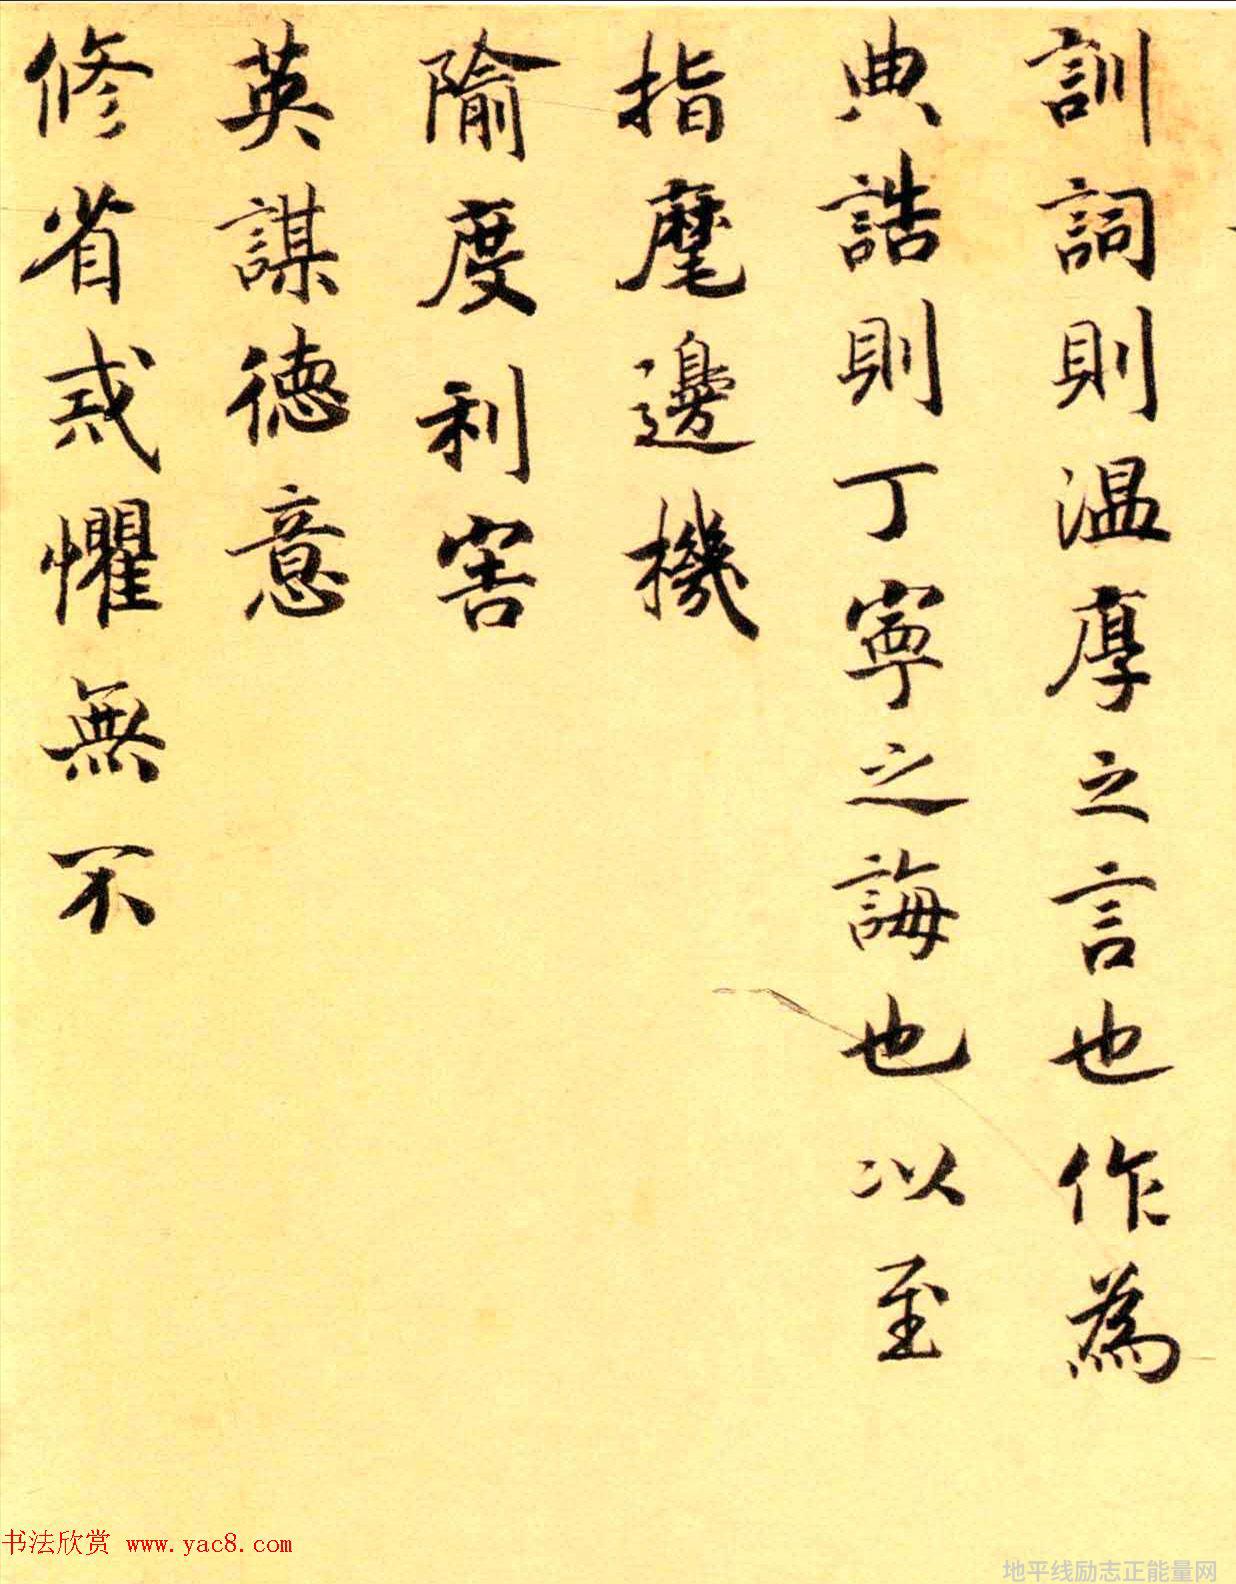 訓詞則温厚之言也作為
典誥則丁寧之誨也以至
指麾邊機
隃度利害
英謀徳意
修省戒懼無不
书法欣赏 www.yac8.com
地平线励志正能量网